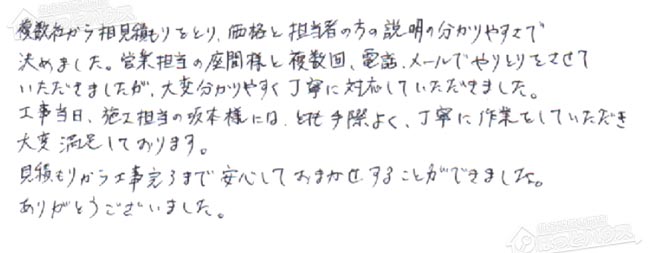 複数社から相見積もりをとり、価格と担当者の方の説明の分かりやすさで
決めました。営業担当の座間様と複数回、電話、メールでやりとりをさせて
いただきましたが、大変分かりやすく丁寧に対応していただきました。
工事当日、施工担当の坂本様には、とても手際よく、丁寧に作業をしていただき
大変満足しております。
見積もりから工事完了まで安心しておまかせすることができました。
ありがとうございました。